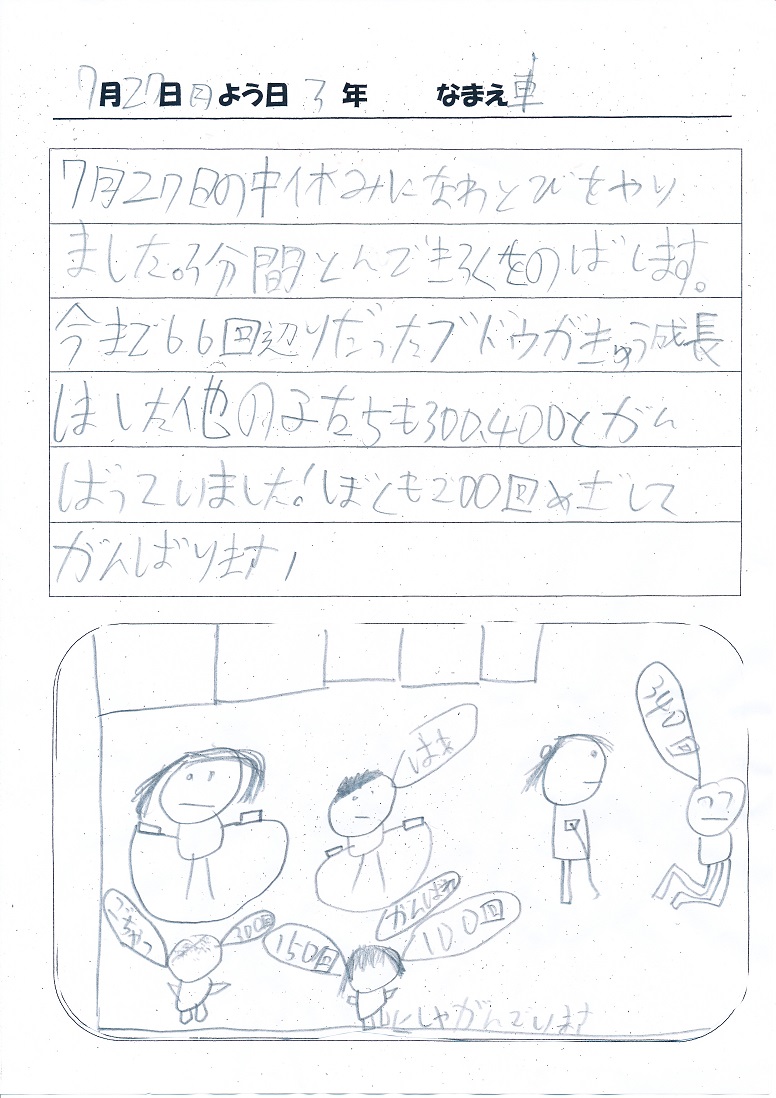 7月27日月よう日 3年 なまえ車
7月27日の中休みになわとびをやり
ました。3分間とんできろくをのばします。
今まで66回辺りだったブドウがきゅう成長
しました他の子たちも300、400とがん
ばっていました!ぼくも200回めざして
がんばります!
340回
はぁ
がんばれ
300回
150回
100回
しゃがんでいます